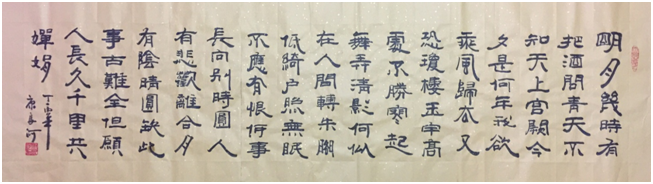 明月幾時有
把酒問青天不
知天上宫闕今
夕是何年我欲
乘風歸去又
恐瓊樓玉宇高
處不勝寒起
舞弄清影何似
在人間轉朱閣
低綺户照無眠
不應有恨何事
長向别時圓人
有悲歡離合月
有陰晴圓缺此
事古難全但願
人長久千里共
嬋娟
丁酉年